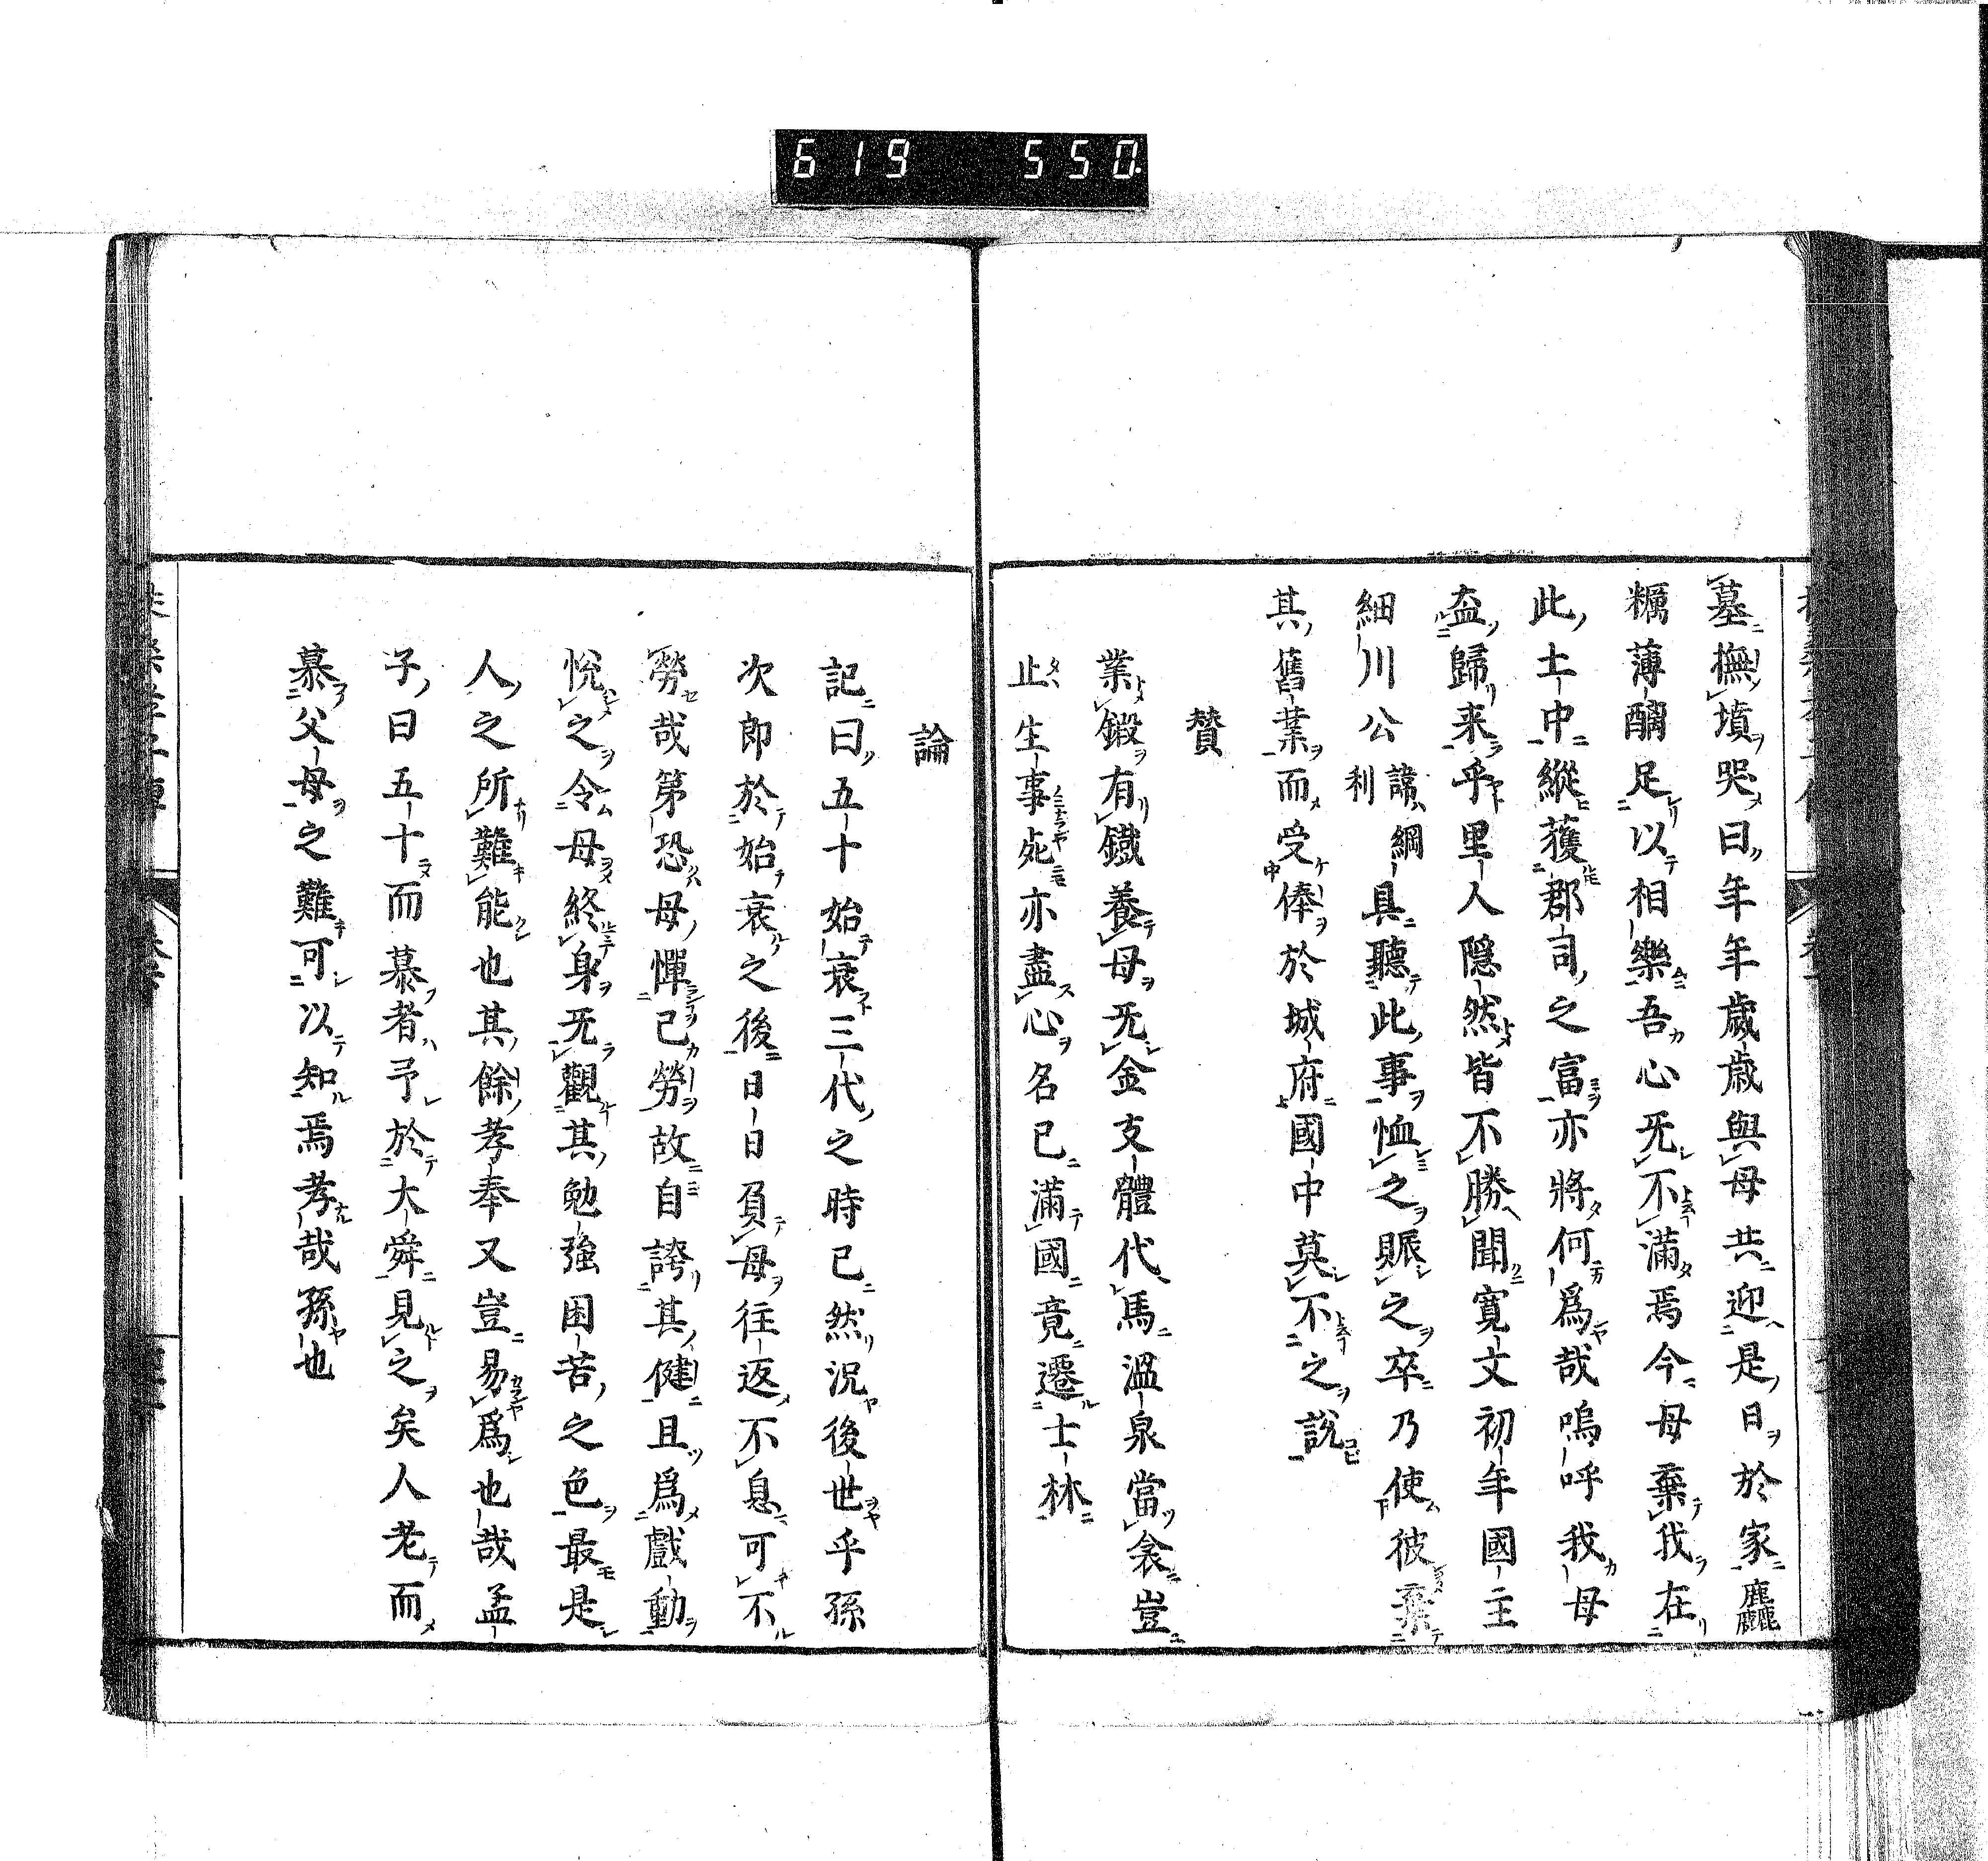 619 550
墓撫墳哭曰年年歲歲與母共迎是日於家麤
糲薄醑足以相樂吾心无不滿焉今母棄我在
此土中縱獲郡司之富亦將何爲哉嗚呼我母
盍歸来乎里人隠然皆不勝聞寛文初年國主
細川公諱綱利具聽此事恤之賑之卒乃使彼棄
其舊業而受俸於城府國中莫不之說
賛
業鍛有鐵養母无金支體代馬溫泉當衾豈
止生事死亦盡心名已滿國竟遷士林
論
記曰五十始衰三代之時已然況後世乎孫
次郎於始衰之後日日負母往返不息可不
勞哉第恐母憚己勞故自誇其健且爲戲動
悅之令母終身无觀其勉強困苦之色最是
人之所難能也其餘孝奉又豈易爲也哉孟
子曰五十而慕者予於大舜見之矣人老而
慕父母之難可以知焉孝哉孫也